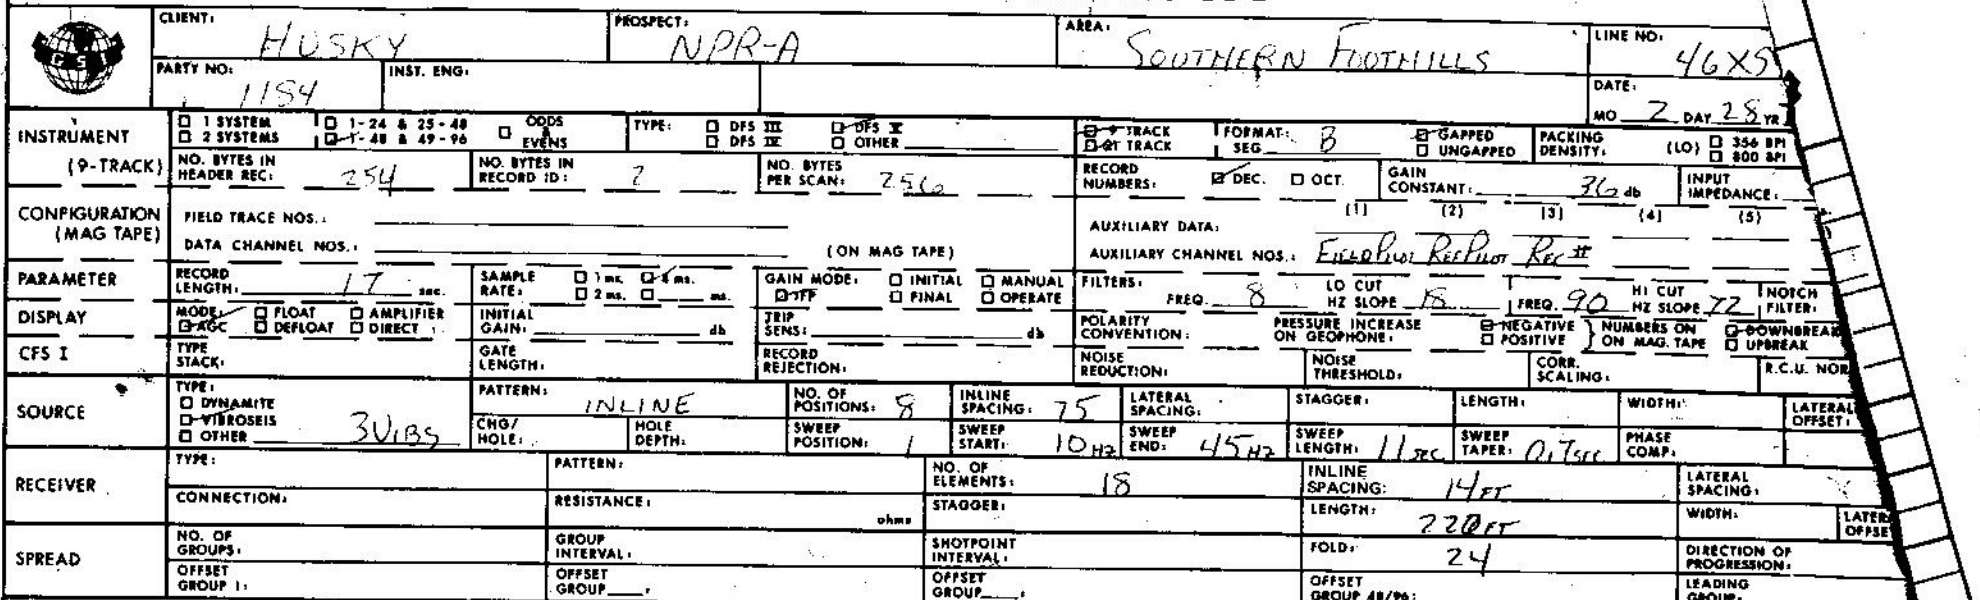 CLIENT: HUSKY PROSPECT: NPR-A AREA: SOUTHERN FOOTHILLS LINE NO: 46XS
GSI
PARTY NO: 1184 INST. ENG: DATE:
MO 2 DAY 28 YR
INSTRUMENT (9-TRACK)
1 SYSTEM 1-24 & 25-48 ODDS & EVENS TYPE: DFS III DFS V 9 TRACK FORMAT: B GAPPED PACKING DENSITY: (LO) 356 BPI
2 SYSTEMS 1-48 & 49-96 DFS IV OTHER 21 TRACK SEG UNGAPPED 800 BPI
NO. BYTES IN HEADER REC: 254 NO. BYTES IN RECORD ID: 2 NO. BYTES PER SCAN: 256 RECORD NUMBERS: DEC. OCT. GAIN CONSTANT: 36 db INPUT IMPEDANCE:
CONFIGURATION (MAG TAPE)
FIELD TRACE NOS.: AUXILIARY DATA: (1) (2) (3) (4) (5)
DATA CHANNEL NOS.: (ON MAG TAPE) AUXILIARY CHANNEL NOS.: FIELD PILOT REF PILOT REC #
PARAMETER
RECORD LENGTH: 17 sec. SAMPLE RATE: 1 ms. 4 ms. 2 ms. ms. GAIN MODE: INITIAL MANUAL IFP FINAL OPERATE FILTERS: FREQ. 8 LO CUT HZ SLOPE 18 FREQ. 90 HI CUT HZ SLOPE 72 NOTCH FILTER:
DISPLAY
MODE: FLOAT AMPLIFIER AGC DEFLOAT DIRECT INITIAL GAIN: db TRIP SENS: db POLARITY CONVENTION: PRESSURE INCREASE ON GEOPHONE: NEGATIVE POSITIVE } NUMBERS ON ON MAG. TAPE DOWNBREAK UPBREAK
CFS I TYPE STACK: GATE LENGTH: RECORD REJECTION: NOISE REDUCTION: NOISE THRESHOLD: CORR. SCALING: R.C.U. NOR
SOURCE
TYPE: DYNAMITE VIBROSEIS OTHER 3 VIBS PATTERN: INLINE NO. OF POSITIONS: 8 INLINE SPACING: 75 LATERAL SPACING: STAGGER: LENGTH: WIDTH: LATERAL OFFSET:
CHG/HOLE: HOLE DEPTH: SWEEP POSITION: 1 SWEEP START: 10 HZ SWEEP END: 45 HZ SWEEP LENGTH: 11 SEC SWEEP TAPER: 0.7 SEC PHASE COMP:
RECEIVER
TYPE: PATTERN: NO. OF ELEMENTS: 18 INLINE SPACING: 14 FT LATERAL SPACING:
CONNECTION: RESISTANCE: ohms STAGGER: LENGTH: 220 FT WIDTH: LATER OFFSE
SPREAD
NO. OF GROUPS: GROUP INTERVAL: SHOTPOINT INTERVAL: FOLD: 24 DIRECTION OF PROGRESSION:
OFFSET GROUP 1: OFFSET GROUP : OFFSET GROUP : OFFSET GROUP 48/96: LEADING GROUP: